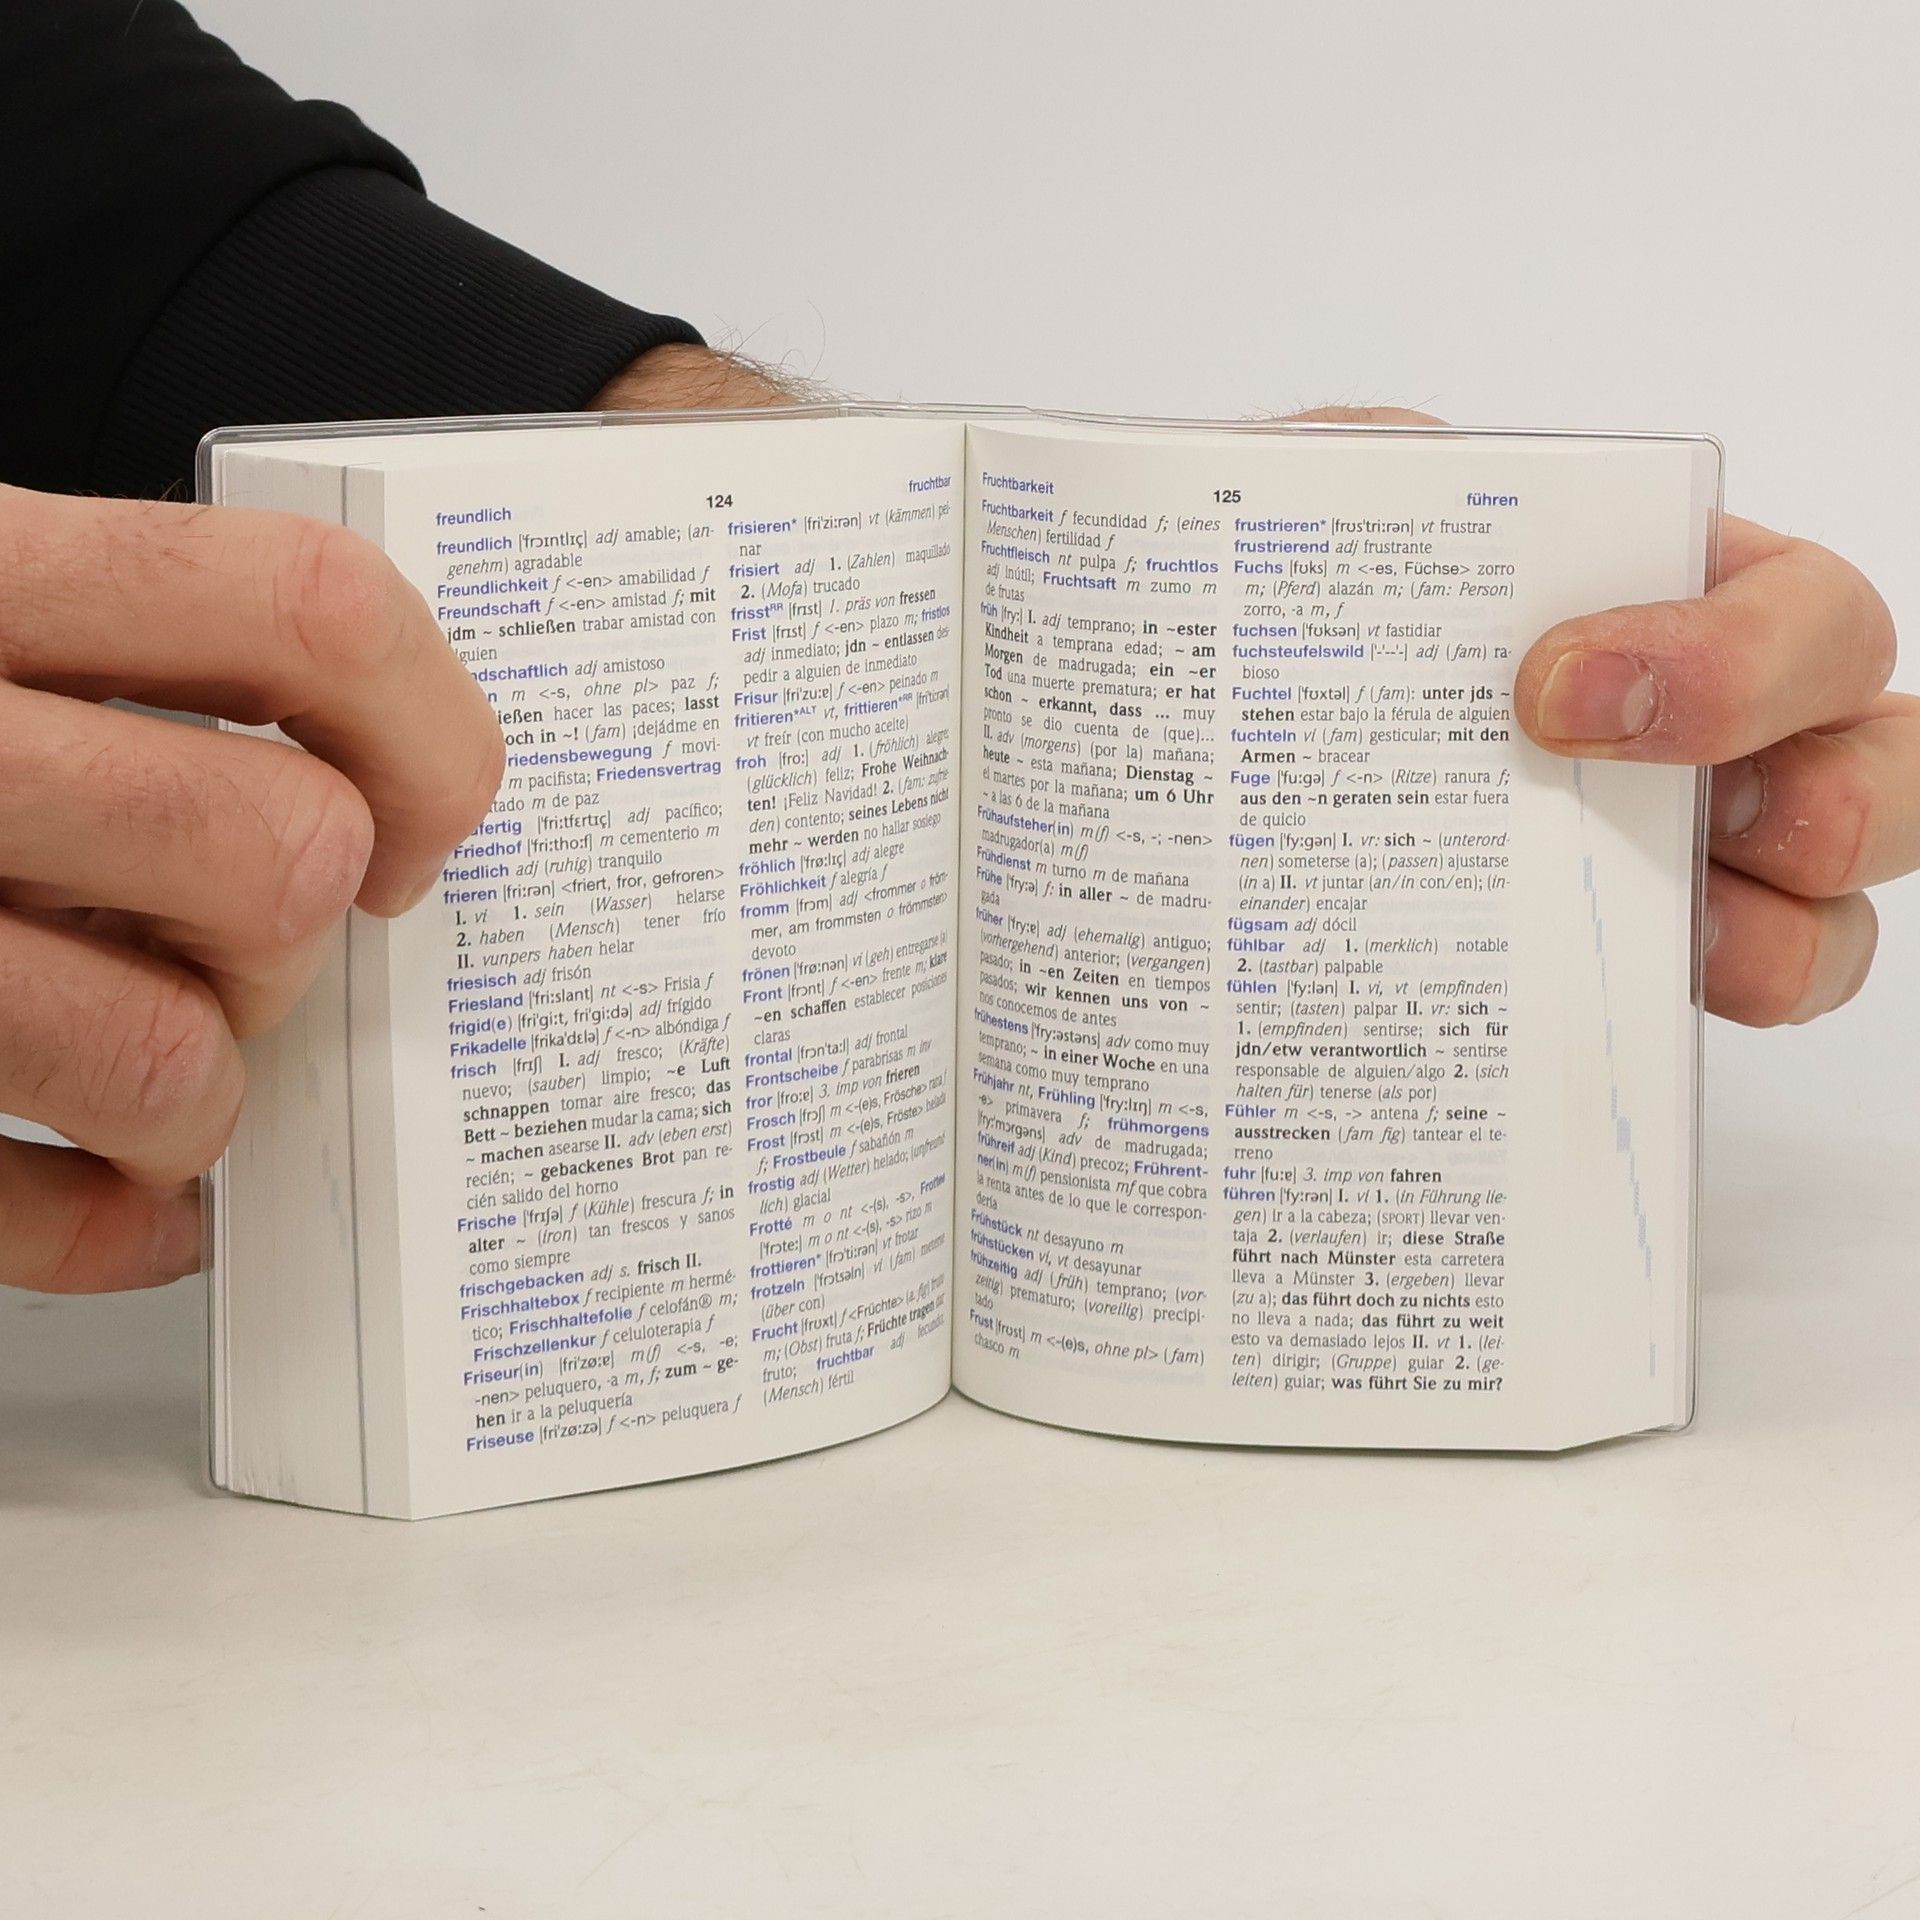 freundlich
124
fruchtbar
freundlich ['frɔɪntlɪç] adj amable; (an-
genehm) agradable
Freundlichkeit f <-en> amabilidad f
Freundschaft f <-en> amistad f; mit
jdm ~ schließen trabar amistad con
guien
dschaftlich adj amistoso
n m <-s, ohne pl> paz f;
ießen hacer las paces; lasst
och in ~! (fam) ¡dejádme en
riedensbewegung f movi-
m pacifista; Friedensvertrag
tado m de paz
fertig ['fri:tfɛrtɪç] adj pacífico;
Friedhof ['fri:tho:f] m cementerio m
friedlich adj (ruhig) tranquilo
frieren [fri:rən] <friert, fror, gefroren>
I. vi 1. sein (Wasser) helarse
2. haben (Mensch) tener frío
II. vunpers haben helar
friesisch adj frisón
Friesland ['fri:slant] nt <-s> Frisia f
frigid(e) [fri'gi:t, fri'gi:də] adj frígido
Frikadelle [frika'dɛlə] f <-n> albóndiga f
frisch [frɪʃ] I. adj fresco; (Kräfte)
nuevo; (sauber) limpio; ~e Luft
schnappen tomar aire fresco; das
Bett ~ beziehen mudar la cama; sich
~ machen asearse II. adv (eben erst)
recién; ~ gebackenes Brot pan re-
cién salido del horno
Frische ['frɪʃə] f (Kühle) frescura f; in
alter ~ (iron) tan frescos y sanos
como siempre
frischgebacken adj s. frisch II.
Frischhaltebox f recipiente m hermé-
tico; Frischhaltefolie f celofán® m;
Frischzellenkur f celuloterapia f
Friseur(in) [fri'zø:ɐ] m(f) <-s, -e;
-nen> peluquero, -a m, f; zum ~ ge-
hen ir a la peluquería
Friseuse [fri'zø:zə] f <-n> peluquera f
frisieren* [fri'zi:rən] vt (kämmen) pei-
nar
frisiert adj 1. (Zahlen) maquillado
2. (Mofa) trucado
frisstRR [frɪst] 1. präs von fressen
Frist [frɪst] f <-en> plazo m; fristlos
adj inmediato; jdn ~ entlassen des-
pedir a alguien de inmediato
Frisur [fri'zu:ɐ] f <-en> peinado m
fritieren*ALT vt, frittieren*RR [fri'ti:rən]
vt freír (con mucho aceite)
froh [fro:] adj 1. (fröhlich) alegre;
(glücklich) feliz; Frohe Weihnach-
ten! ¡Feliz Navidad! 2. (fam: zufrie-
den) contento; seines Lebens nicht
mehr ~ werden no hallar sosiego
fröhlich ['frø:lɪç] adj alegre
Fröhlichkeit f alegría f
fromm [frɔm] adj <frommer o fröm-
mer, am frommsten o frömmsten>
devoto
frönen ['frø:nən] vi (geh) entregarse (a)
Front [frɔnt] f <-en> frente m; klare
~en schaffen establecer posiciones
claras
frontal [frɔn'ta:l] adj frontal
Frontscheibe f parabrisas m inv
fror [fro:ɐ] 3. imp von frieren
Frosch [frɔʃ] m <-(e)s, Frösche> rana f
Frost [frɔst] m <-(e)s, Fröste> helada
f; Frostbeule f sabañón m
frostig adj (Wetter) helado; (unfreund-
lich) glacial
Frotté m o nt <-(s), -s>, Frottee
['frɔte:] m o nt <-(s), -s> rizo m
frottieren* [frɔ'ti:rən] vt frotar
frotzeln ['frɔtsəln] vi (fam) meterse
(über con)
Frucht [frʊxt] f <Früchte> (a. fig) fruto
m; (Obst) fruta f; Früchte tragen dar
fruto; fruchtbar adj fecundo;
(Mensch) fértil
Fruchtbarkeit
125
führen
Fruchtbarkeit f fecundidad f; (eines
Menschen) fertilidad f
Fruchtfleisch nt pulpa f; fruchtlos
adj inútil; Fruchtsaft m zumo m
de frutas
früh [fry:] I. adj temprano; in ~ester
Kindheit a temprana edad; ~ am
Morgen de madrugada; ein ~er
Tod una muerte prematura; er hat
schon ~ erkannt, dass ... muy
pronto se dio cuenta de (que)...
II. adv (morgens) (por la) mañana;
heute ~ esta mañana; Dienstag ~
el martes por la mañana; um 6 Uhr
~ a las 6 de la mañana
Frühaufsteher(in) m(f) <-s, -; -nen>
madrugador(a) m(f)
Frühdienst m turno m de mañana
Frühe ['fry:ə] f: in aller ~ de madru-
gada
früher ['fry:ɐ] adj (ehemalig) antiguo;
(vorhergehend) anterior; (vergangen)
pasado; in ~en Zeiten en tiempos
pasados; wir kennen uns von ~
nos conocemos de antes
frühestens ['fry:əstəns] adv como muy
temprano; ~ in einer Woche en una
semana como muy temprano
Frühjahr nt, Frühling ['fry:lɪŋ] m <-s,
-e> primavera f; frühmorgens
[fry:'mɔrgəns] adv de madrugada;
frühreif adj (Kind) precoz; Frührent-
ner(in) m(f) pensionista mf que cobra
la renta antes de lo que le correspon-
dería
Frühstück nt desayuno m
frühstücken vi, vt desayunar
frühzeitig adj (früh) temprano; (vor-
zeitig) prematuro; (voreilig) precipi-
tado
Frust [frʊst] m <-(e)s, ohne pl> (fam)
chasco m
frustrieren* [frʊs'tri:rən] vt frustrar
frustrierend adj frustrante
Fuchs [fʊks] m <-es, Füchse> zorro
m; (Pferd) alazán m; (fam: Person)
zorro, -a m, f
fuchsen ['fʊksən] vt fastidiar
fuchsteufelswild ['-'--'-] adj (fam) ra-
bioso
Fuchtel ['fʊxtəl] f (fam): unter jds ~
stehen estar bajo la férula de alguien
fuchteln vi (fam) gesticular; mit den
Armen ~ bracear
Fuge ['fu:gə] f <-n> (Ritze) ranura f;
aus den ~n geraten sein estar fuera
de quicio
fügen ['fy:gən] I. vr: sich ~ (unterord-
nen) someterse (a); (passen) ajustarse
(in a) II. vt juntar (an/in con/en); (in-
einander) encajar
fügsam adj dócil
fühlbar adj 1. (merklich) notable
2. (tastbar) palpable
fühlen ['fy:lən] I. vi, vt (empfinden)
sentir; (tasten) palpar II. vr: sich ~
1. (empfinden) sentirse; sich für
jdn/etw verantwortlich ~ sentirse
responsable de alguien/algo 2. (sich
halten für) tenerse (als por)
Fühler m <-s, -> antena f; seine ~
ausstrecken (fam fig) tantear el te-
rreno
fuhr [fu:ɐ] 3. imp von fahren
führen ['fy:rən] I. vi 1. (in Führung lie-
gen) ir a la cabeza; (SPORT) llevar ven-
taja 2. (verlaufen) ir; diese Straße
führt nach Münster esta carretera
lleva a Münster 3. (ergeben) llevar
(zu a); das führt doch zu nichts esto
no lleva a nada; das führt zu weit
esto va demasiado lejos II. vt 1. (lei-
ten) dirigir; (Gruppe) guiar 2. (ge-
leiten) guiar; was führt Sie zu mir?